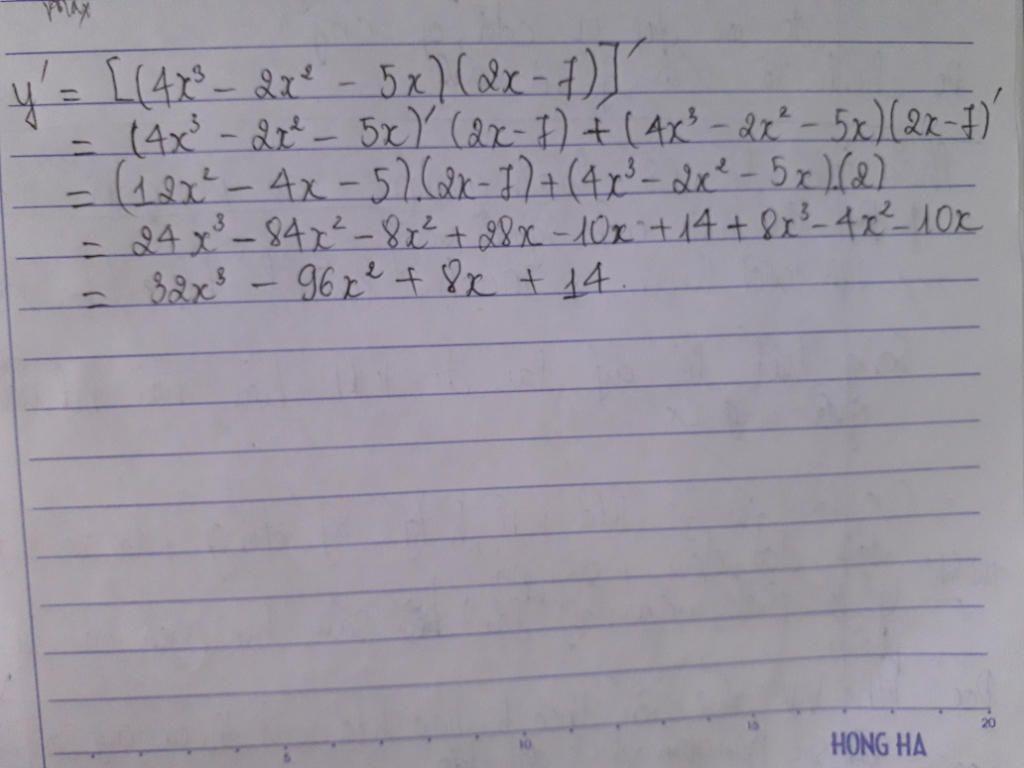 max
y' = [(4x³ - 2x² - 5x)(2x - 7)]'
= (4x³ - 2x² - 5x)' (2x - 7) + (4x³ - 2x² - 5x)(2x - 7)'
= (12x² - 4x - 5).(2x - 7) + (4x³ - 2x² - 5x).(2)
= 24x³ - 84x² - 8x² + 28x - 10x + 14 + 8x³ - 4x² - 10x
= 32x³ - 96x² + 8x + 14.
5 10 15 20
HONG HA